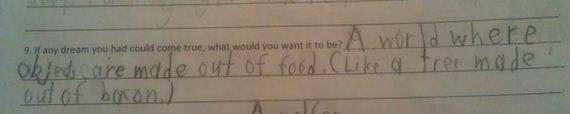 9. If any dream you had could come true, what would you want it to be? A world where
objects are made out of food. (Like a tree made
out of bacon.)